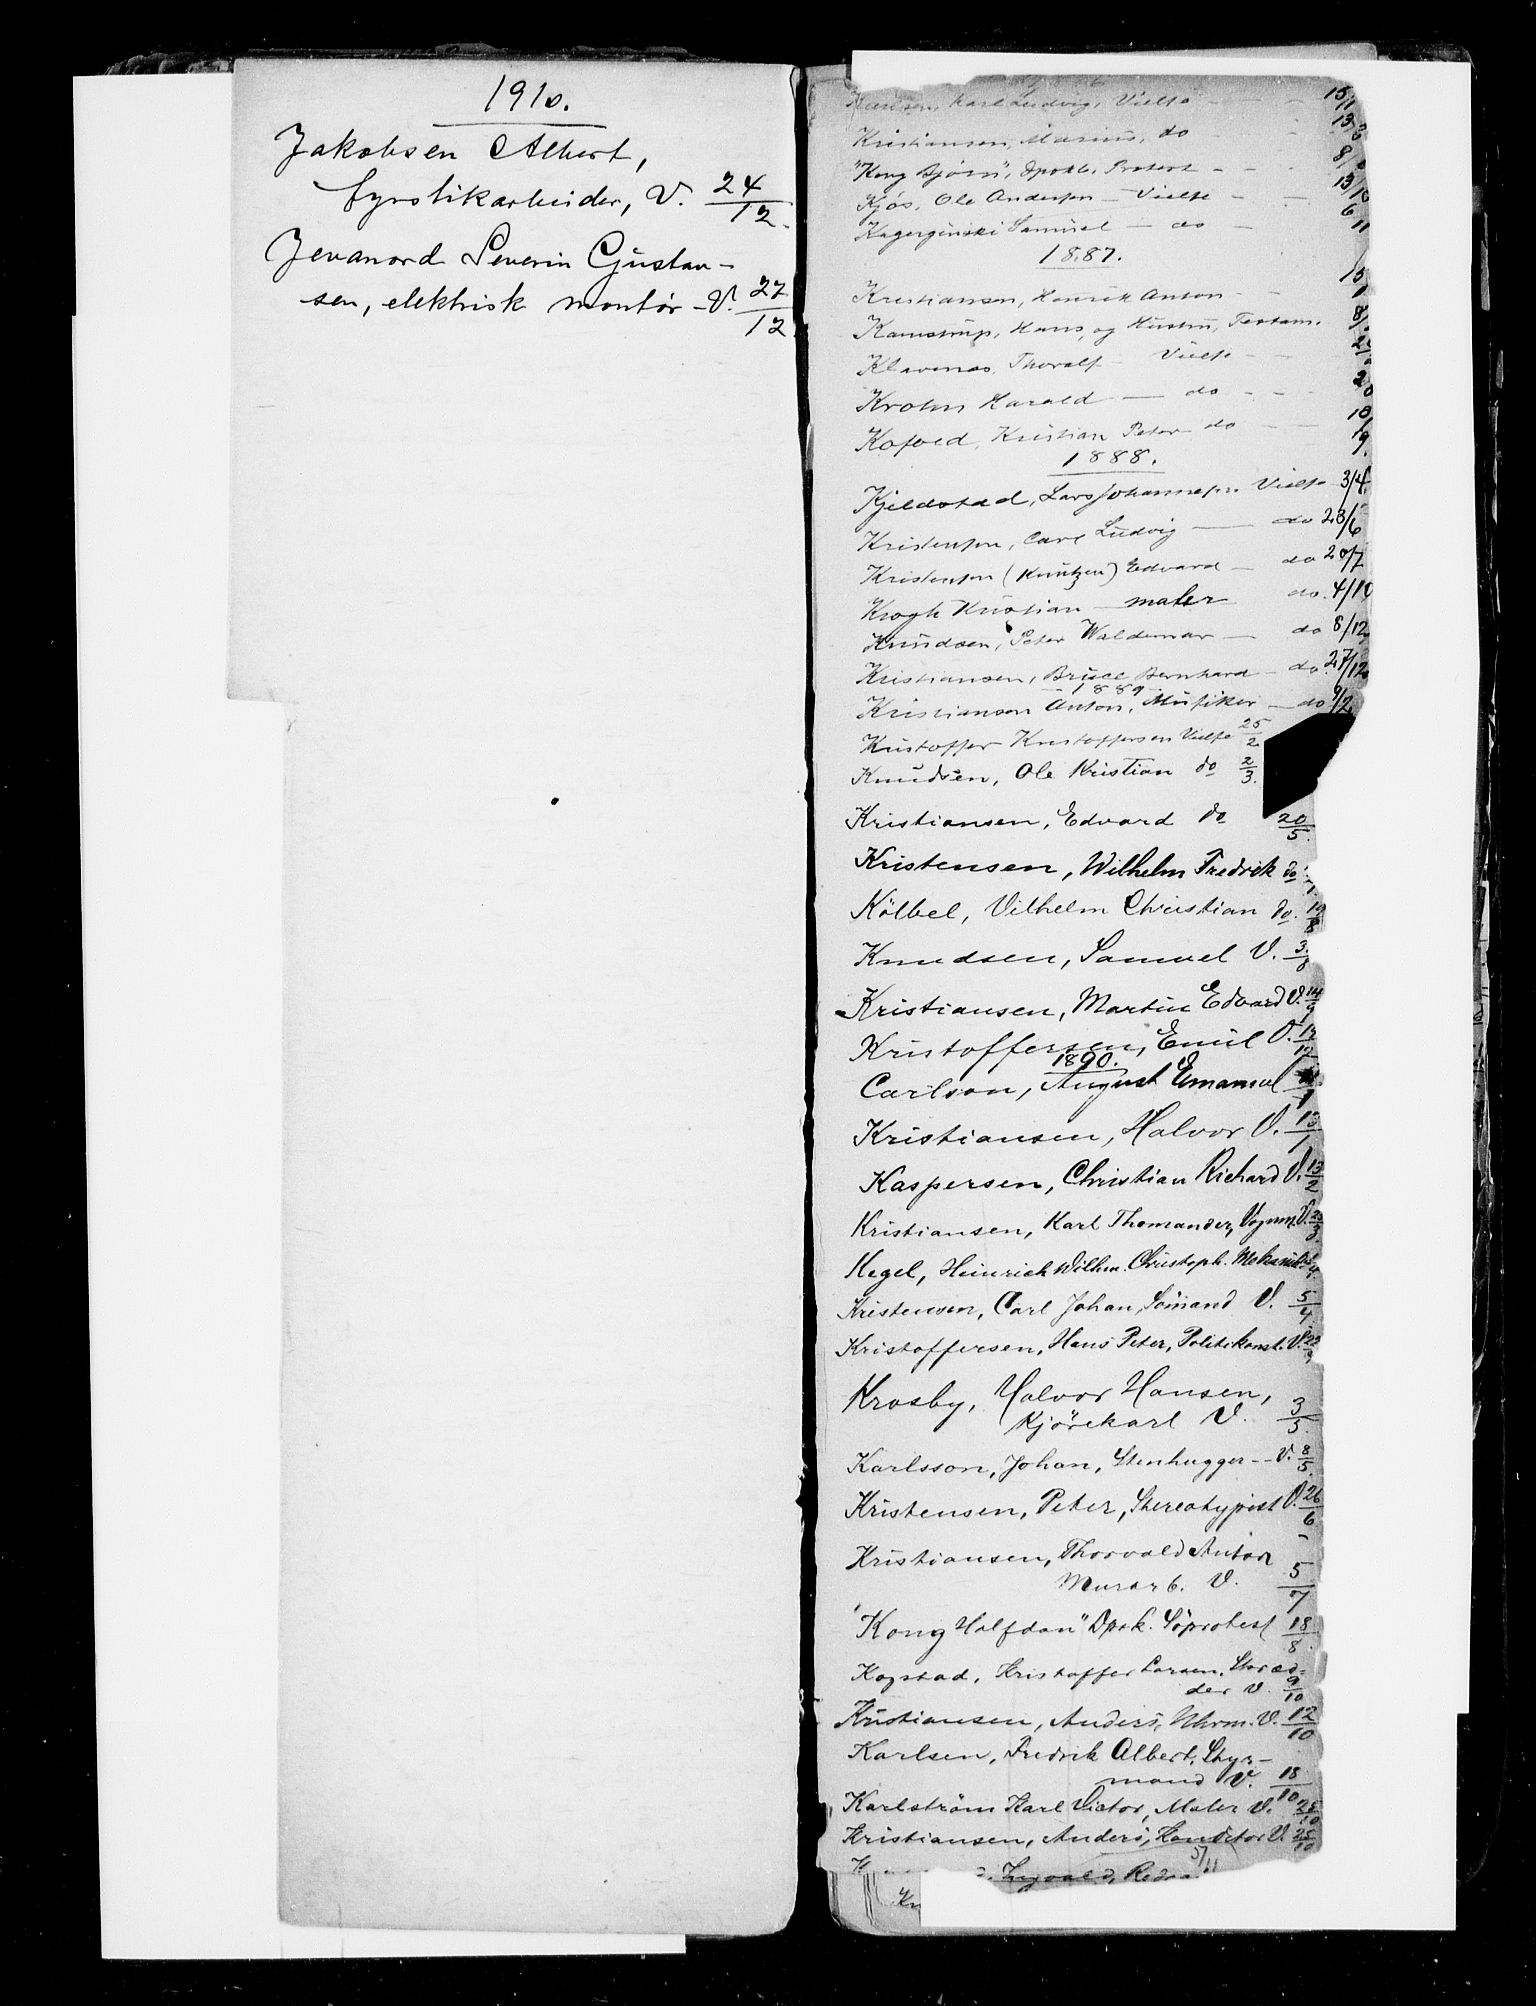 1910.
Jakobsen Albert,
fyrstikarbeider, V. 24/12.
Jevanord Severin Gustav-
sen, elektrisk montör - V. 27/12
Karl Ludvig, Vielse
Kristiansen, Marius, do
"Kong Bjørn", Protest
Kjøs, Ole Andersen - Vielse
Kagerginski Samuel - do
1887.
Kristiansen, Henrik Anton
Kamstrup, Hans, og Hustru, Testam.
Klavenæs, Thoralf - Vielse
Krohn Harald - do
Kofoed, Kristian Peter do
1888.
Kjeldstad, Lars Johannesen Vielse 3/4.
Kristensen, Carl Ludvig - do 23/6
Kristensen (Knutzen) Edvard - do 20/7
Krogh Kristian - maler do. 4/10
Knudsen, Peter Waldemar - do 8/12
Kristiansen, Bruce Bernhard - do 27/12
1889
Kristiansen Anton, Musiker - do 9/2
Kristoffer Kristoffersen Vielse 25/2
Knudsen, Ole Kristian do 2/3.
Kristiansen, Edvard do 20/5.
Kristensen, Wilhelm Fredrik do
Kölbel, Vilhelm Christian do. 19/8
Knudsen, Samuel V. 3/8
Kristiansen, Martin Edvard V. 14/9
Kristoffersen, Emil V.
1890.
Carlson, August Emanuel
Kristiansen, Halvor V. 13/1
Kaspersen, Christian Richard V. 13/2
Kristiansen, Karl Thomander, Vognm. V.
Kegel, Heinrich Wilhm. Christoph. Mekanik.
Kristensen, Carl Johan, Sömand V. 5/4
Kristoffersen, Hans Peter, Politikonst. V.
Krosby, Halvor Hansen,
Kjörekarl V. 3/5.
Karlsson, Johan, Stenhugger - - V. 8/5.
Kristensen, Peter, Stereotypist V. 26/6
Kristiansen, Thorvald Anton
Murarb. V. 5/7
"Kong Halfdan" Dpsk. Söprotest 18/8.
Kopstad, Kristoffer Larsen, Skræd-
der V. 9/10
Kristiansen, Anders, Uhrm. V. 12/10
Karlsen, Fredrik Albert, Styr-
mand V. 18/10
Karlström Karl Victor, Maler V. 25/10
Kristiansen, Anders, Konditor V. 25/10
Ingvald, 5/11
Kr